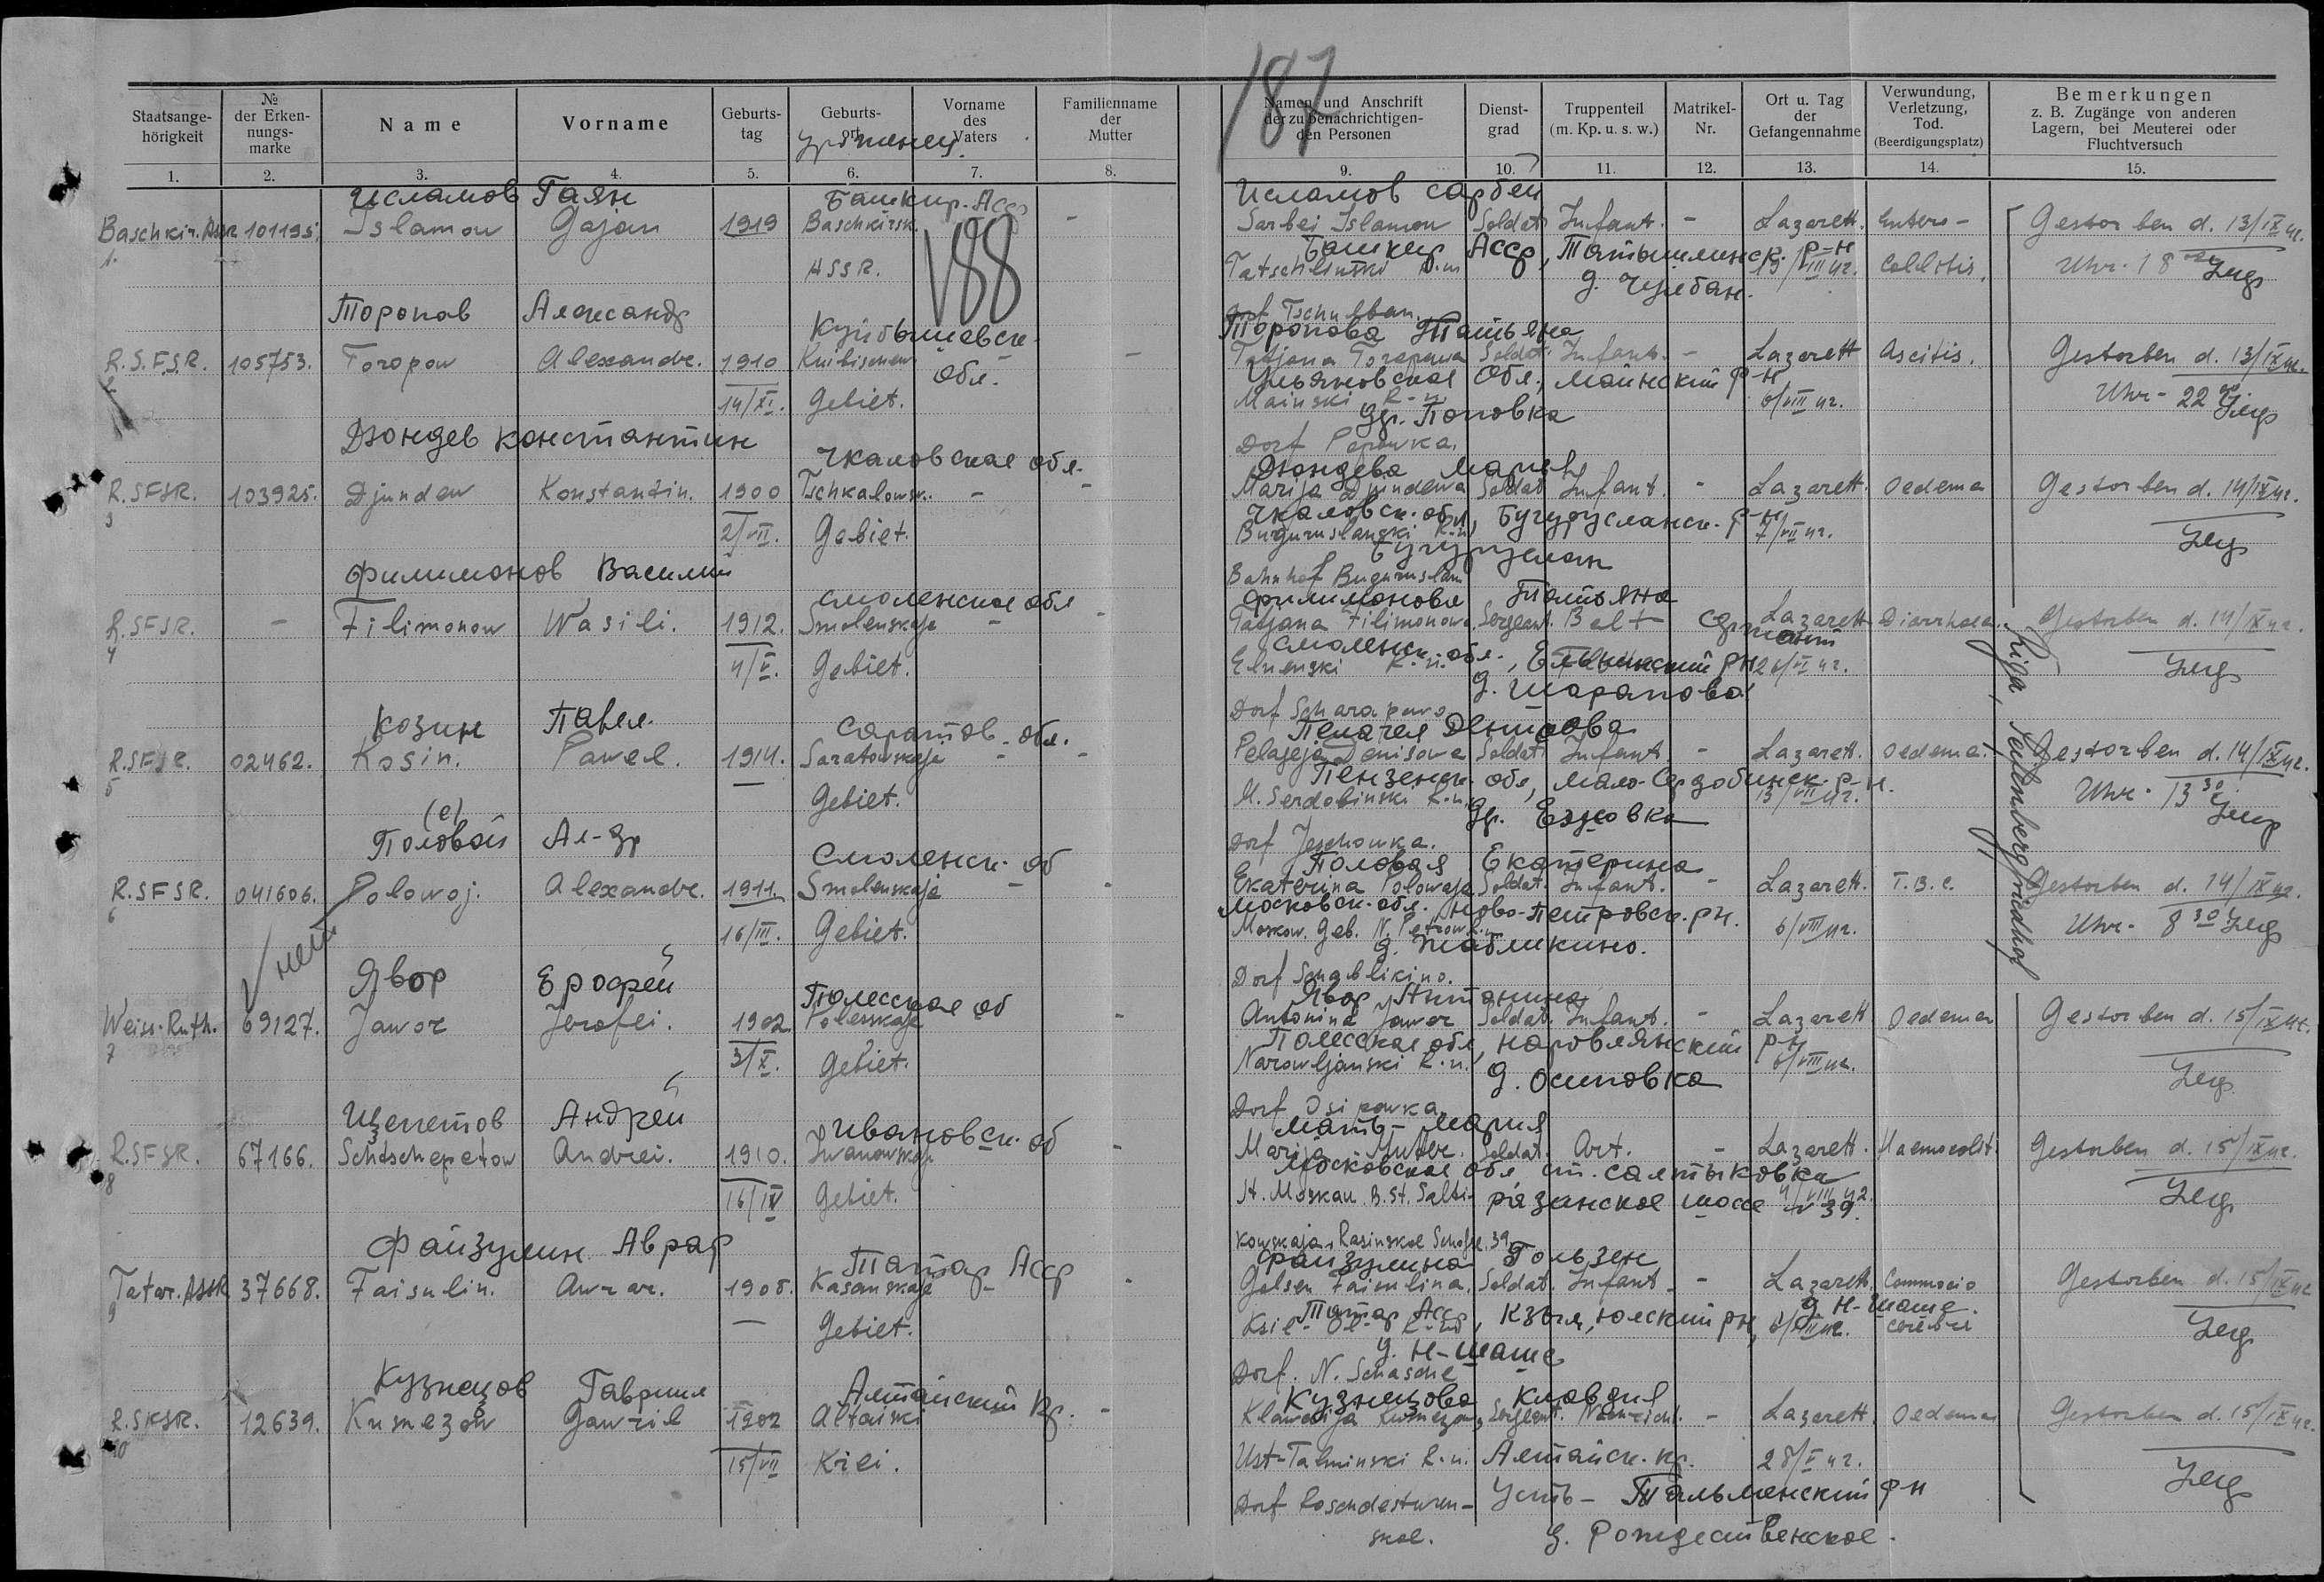 187
Staatsangehörigkeit | № der Erkennungsmarke | Name | Vorname | Geburtstag | Geburtsort | Vorname des Vaters | Familienname der Mutter | Namen und Anschrift der zu benachrichtigenden Personen | Dienstgrad | Truppenteil (m. Kp. u. s. w.) | Matrikel-Nr. | Ort u. Tag der Gefangennahme | Verwundung, Verletzung, Tod. (Beerdigungsplatz) | Bemerkungen z. B. Zugänge von anderen Lagern, bei Meuterei oder Fluchtversuch
уроженец
1. 2. 3. 4. 5. 6. 7. 8. 9. 10. 11. 12. 13. 14. 15.
Исламов Гаян Башкир. Асср Исламов Сарбей
Baschkir. Assr 101195. Islamow Gajan 1919 Baschkirsk. - Sarbei Islamow Soldat Infant. - Lazarett. Entero- Gestorben d. 13/IX 42.
1. Башкир Асср, Татышлинск. р-н
ASSR. 188 Tatschlinski R.n 19/VIII 42. Collitis. Uhr. 18
д. Чулбан.
Торопов Александр Dorf Tschulban.
Куйбышевск. обл. Торопова Татьяна
R.S.F.S.R. 105753. Toropow Alexandr. 1910 Kuibischew - Tatjana Toropowa Soldat. Infant. - Lazarett Ascitis. Gestorben d. 13/IX 42.
2 Ульяновская обл., Майнский р-н
14/XI. Gebiet. Mainski R-n 6/VIII 42. Uhr- 22
др. Поповка
Дюндев Константин Dorf Popowka.
Чкаловская обл. Дюндева Мария
R.SFSR. 103925. Djundew Konstantin. 1900 Tschkalowsk. - - Marija Djundewa Soldat Infant. - Lazarett. Oedema Gestorben d. 14/IX 42.
3 Чкаловск. обл, Бугурусланск. р-н
2/VII. Gebiet. Buguruslanski R.n 7/VII 42.
Бугуруслан
Филимонов Василий Bahnhof Buguruslan
Смоленская обл Филимонова Татьяна
R.SFSR. - Filimonow Wasili. 1912. Smolenskaje - - Tatjana Filimonowa Sergeant. Lazarett Diarrhoea. Gestorben d. 14/IX 42.
4 Смоленск. обл., Ельнинский рн
4/V. Gebiet. Elnenski R.n. 26/VI 42.
д. Шарапово
Козин Павел Dorf Scharapowo
Саратов. обл. Пелагея Денисова
R.SFSR. 02462. Kosin. Pawel. 1914. Saratowskaje - - Pelageja Denisowa Soldat Infant. - Lazarett. Oedema. Gestorben d. 14/IX 42.
5 Пензенск. обл, Мало-Сердобинск. р-н.
— Gebiet. M. Serdobinski R.n. 13/VIII 42. Uhr. 13 30
др. Ежовка
(е)
Половой Ал-др Dorf Jeschowka.
Смоленск. об Половая Екатерина
R.SFSR. 041606. Polowoj. Alexandr. 1911. Smolenskaje - - Ekaterina Polowaja Soldat. Infant. - Lazarett. T.B.C. Gestorben d. 14/IX 42.
6 Московск. обл. Ново-Петровск. рн.
16/III. Gebiet. Moskow. Geb. N. Petrow R.n 6/VIII 42. Uhr- 8 30
нет д. Шабликино.
Явор Ерофей Dorf Schablikino.
Полесская об Явор Антонина
Weiss-Ruth. 69127. Jawor Jerofei. 1902. Polesskaje - Antonina Jawor Soldat. Infant. - Lazarett Oedema Gestorben d. 15/IX 42.
7 Полесская обл, Наровлянский р-н
3/X. Gebiet. Narowljanski R.n. 6/VIII 42.
д. Осиповка
Щепетов Андрей Dorf Osipowka.
Ивановск. об Мать - Мария
R.SFSR. 67166. Schtschepetow Andrei. 1910. Iwanowskaje - Marija Muter. Soldat. Art. - Lazarett. Haemocolit. Gestorben d. 15/IX 42.
8 Московская обл ст. Салтыковка
16/IV Gebiet. St. Moskau. B.St. Salti- 4/VIII 42.
Рязанское шоссе N 39.
kowskaja, Rasinskoe Schosse. 39
Файзулин Аврар Татар Асср Файзулина Гользен
Tatar. ASSR 37668. Faisulin. Awrar. 1908. Kasanskaje - - Golsen Faisulina. Soldat. Infant. - Lazarett. Commocio Gestorben d. 15/IX 42
9 Татар Асср, Кзыл, юлский рн, д. Н-Шаше.
— Gebiet. 6/VIII 42. cerebri
д. Н-Шаше
Dorf. N. Schasche
Кузнецов Гавриил Алтайский кр. Кузнецова Клавдия
R.SFSR. 12639. Kusnezow Gawril 1902 Altaiski - Klawdija Kusnezowa Sergeant. - Lazarett. Oedema Gestorben d. 15/IX 42.
10
15/VII Krei. Ust-Talminski R.n. Алтайск. кр. 28/V 42.
Dorf Roschdestwen- Усть-Тальменский р-н
skoe. д. Рождественское.
Riga, Friedhof